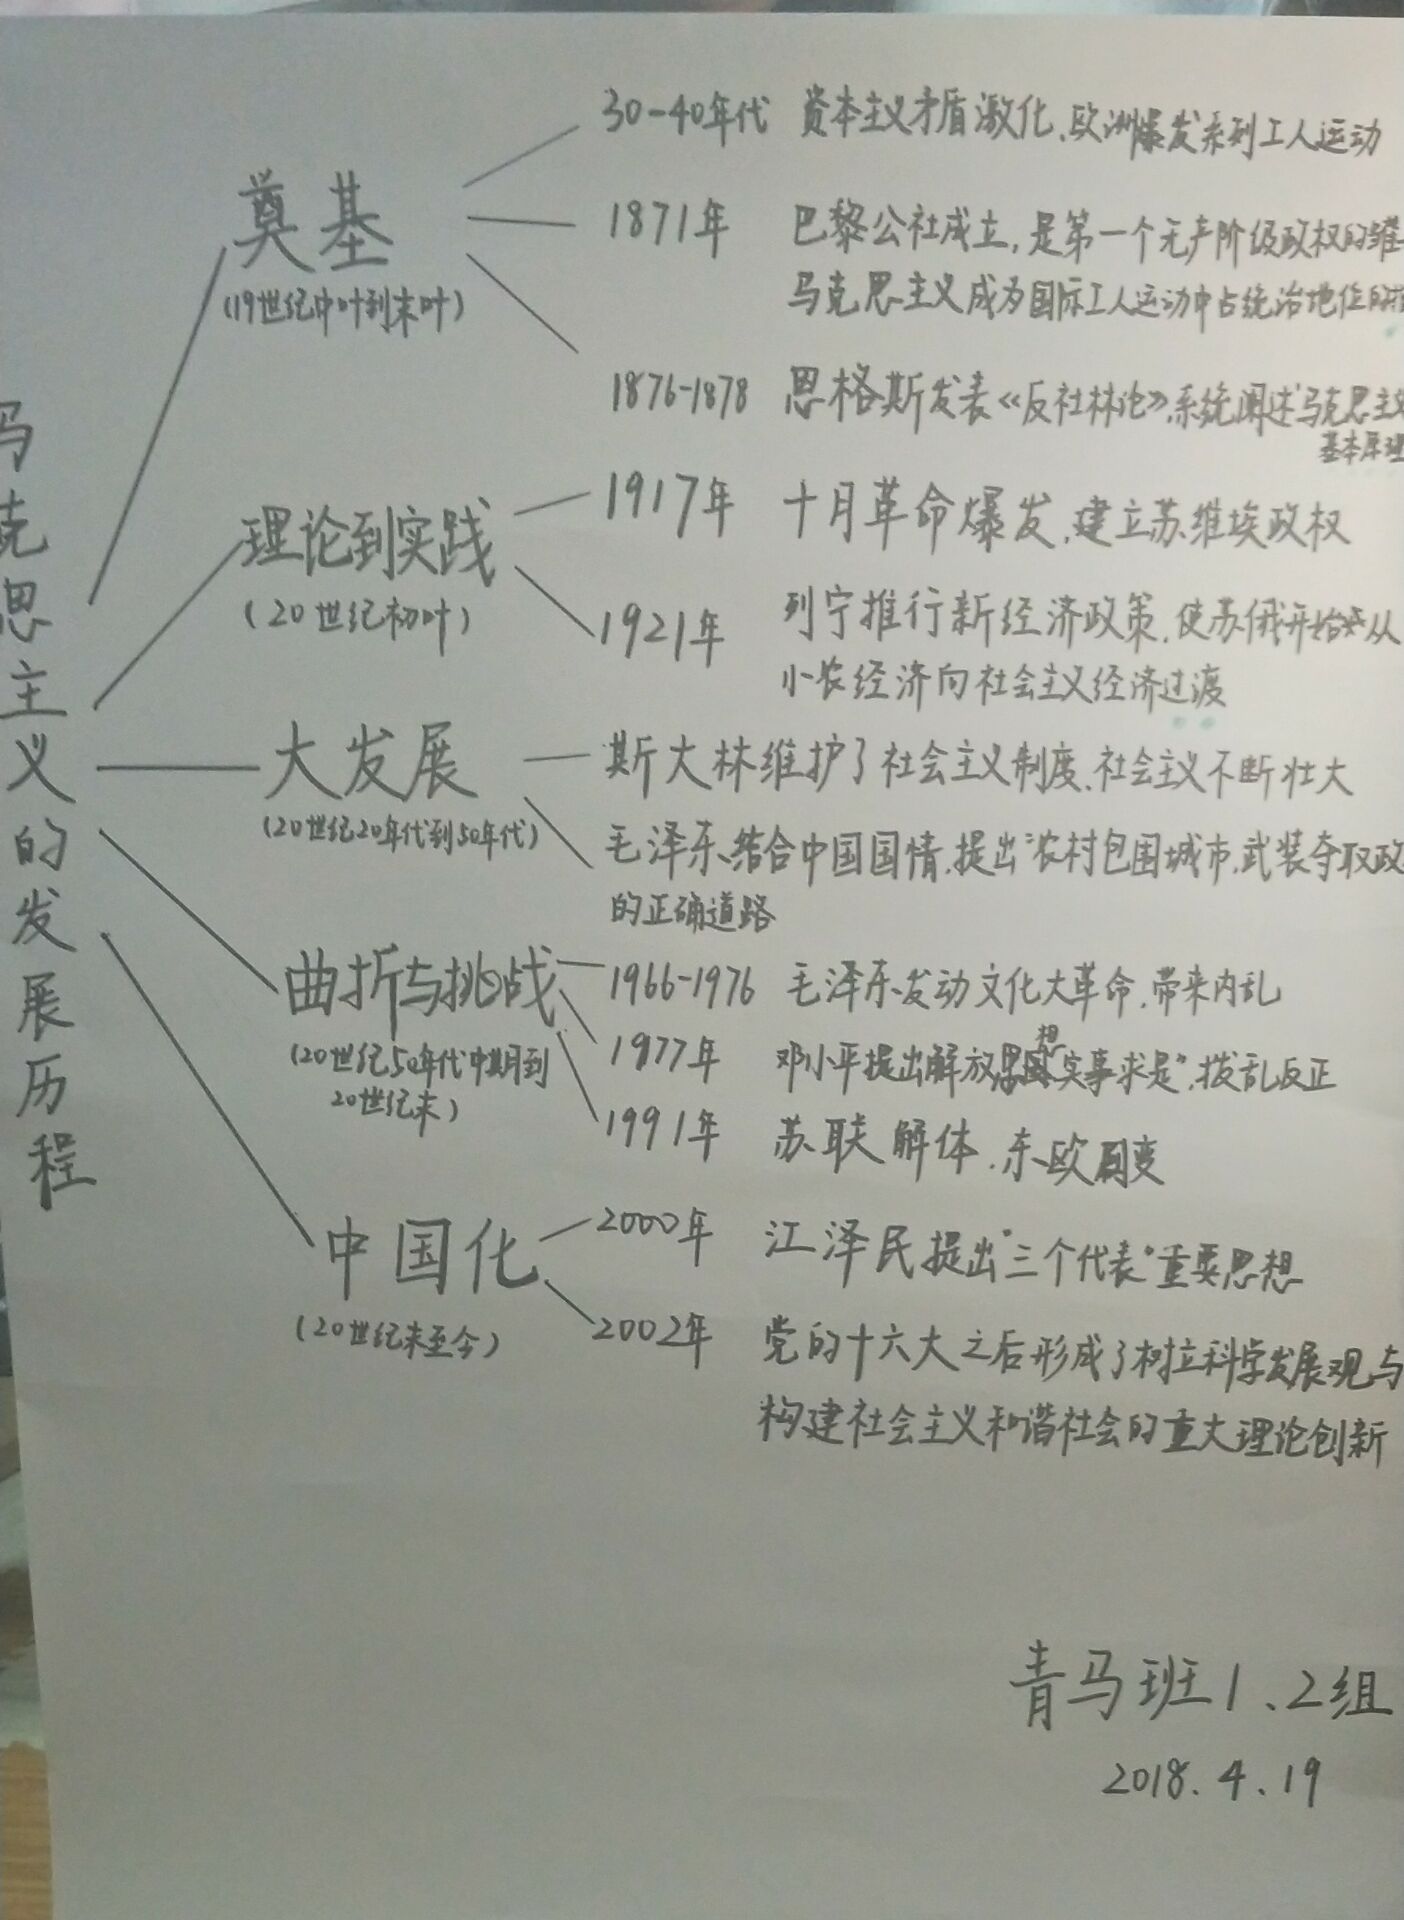 马克思主义的发展历程
奠基
(19世纪中叶到末叶)
30-40年代 资本主义矛盾激化,欧洲爆发系列工人运动
1871年 巴黎公社成立,是第一个无产阶级政权的雏
马克思主义成为国际工人运动中占统治地位的
1876-1878 恩格斯发表《反社林论》,系统阐述马克思主义
基本原理
理论到实践
(20世纪初叶)
1917年 十月革命爆发,建立苏维埃政权
1921年 列宁推行新经济政策,使苏俄开始从
小农经济向社会主义经济过渡
大发展
(20世纪20年代到50年代)
斯大林维护了社会主义制度,社会主义不断壮大
毛泽东结合中国国情,提出"农村包围城市,武装夺取政
的正确道路
曲折与挑战
(20世纪50年代中期到
20世纪末)
1966-1976 毛泽东发动文化大革命,带来内乱
1977年 邓小平提出解放思想实事求是",拨乱反正
1991年 苏联解体,东欧剧变
中国化
(20世纪末至今)
2000年 江泽民提出"三个代表"重要思想
2002年 党的十六大之后形成了树立科学发展观与
构建社会主义和谐社会的重大理论创新
青马班1、2组
2018.4.19